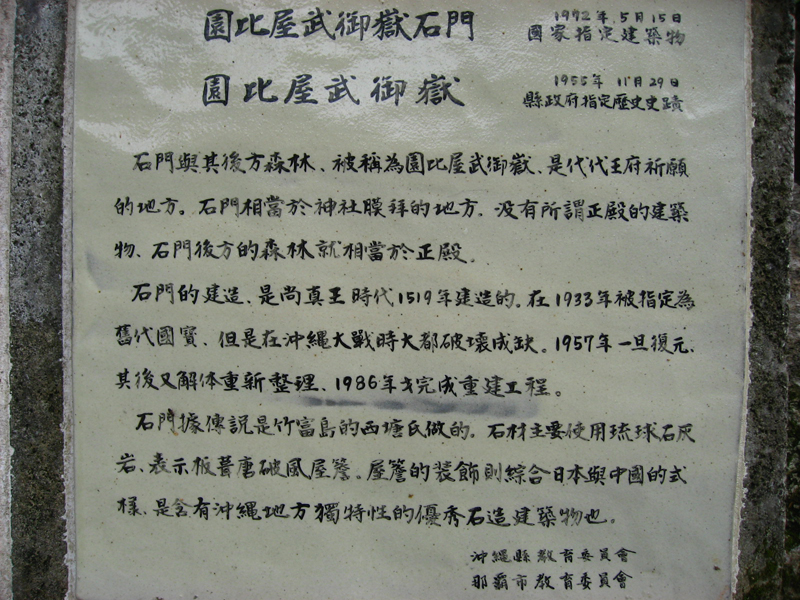 園比屋武御嶽石門
1972年5月15日
國家指定建築物
園比屋武御嶽
1955年11月29日
縣政府指定歷史史蹟
石門與其後方森林、被稱為園比屋武御嶽、是代代王府祈願
的地方。石門相當於神社膜拜的地方．没有所謂正殿的建築
物、石門後方的森林就相當於正殿。
石門的建造、是尚真王時代1519年建造的。在1933年被指定為
舊代國寶、但是在沖縄大戰時大都破壞成缺。1957年一旦復元、
其後又解体重新整理、1986年才完成重建工程。
石門據傳説是竹富島的西塘氏做的。石材主要使用琉球石灰
岩、表示板葺唐破風屋簷。屋簷的装飾則綜合日本與中國的式
樣、是含有沖縄地方獨特性的優秀石造建築物也。
沖縄縣教育委員會
那霸市教育委員會